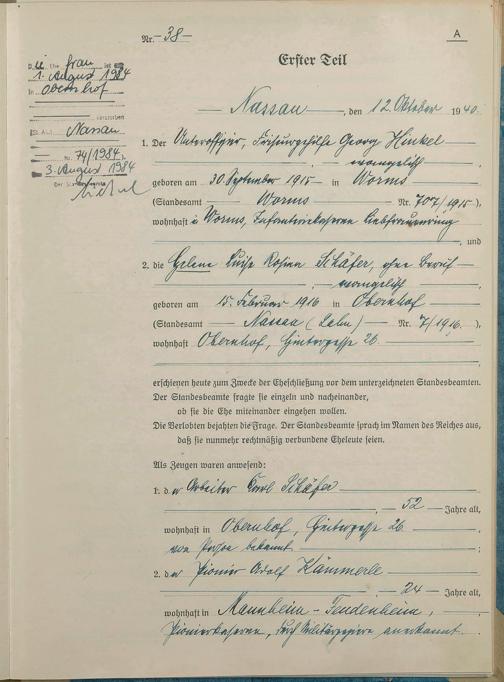 Nr. 38
A
Erster Teil
Die Ehefrau ist am
1. August 1984
in Obernhof
verstorben
St.A. Nassau
Nr. 74/1984
3. August 1984
Der Standesbeamte
Nassau, den 12. Oktober 1940.
1. Der Unteroffizier, Friseurgehilfe Georg Hinkel
, evangelisch
geboren am 30. September 1915 in Worms
(Standesamt Worms Nr. 707/1915),
wohnhaft in Worms, Infanteriekaserne Liebfrauenring
, und
2. die Helene Luise Rosina Schäfer, ohne Beruf
, evangelisch
geboren am 15. Februar 1916 in Obernhof
(Standesamt Nassau (Lahn) Nr. 7/1916.),
wohnhaft Obernhof, Hintergasse 26.
erschienen heute zum Zwecke der Eheschließung vor dem unterzeichneten Standesbeamten.
Der Standesbeamte fragte sie einzeln und nacheinander,
ob sie die Ehe miteinander eingehen wollen.
Die Verlobten bejahten die Frage. Der Standesbeamte sprach im Namen des Reiches aus,
daß sie nunmehr rechtmäßig verbundene Eheleute seien.
Als Zeugen waren anwesend:
1. der Arbeiter Karl Schäfer
, 52 Jahre alt,
wohnhaft in Obernhof, Hintergasse 26
von Person bekannt ;
2. der Pionier Adolf Kämmerle
, 24 Jahre alt,
wohnhaft in Mannheim-Feudenheim,
Pionierkaserne, durch Militärpapiere anerkannt.